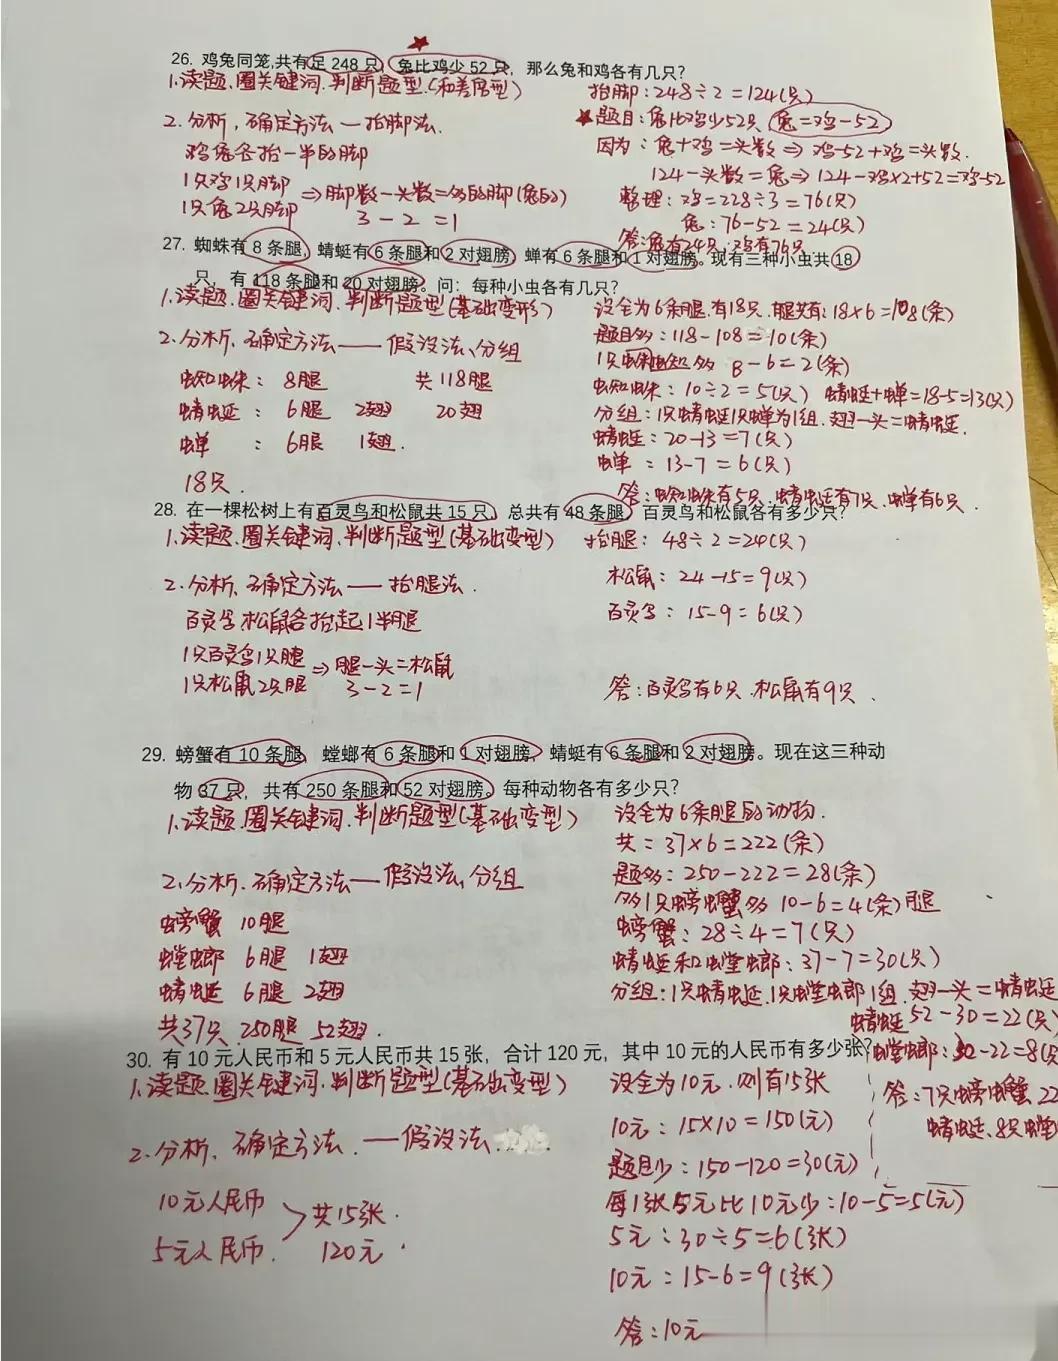 26. 鸡兔同笼,共有足 248 只, 兔比鸡少 52 只, 那么兔和鸡各有几只?
1.读题.圈关键词.判断题型.(和差倍型)
2.分析,确定方法—抬脚法.
鸡兔各抬一半的脚
1只鸡1只脚
1只兔2只脚
⇒脚数-头数=多的脚(兔的)
3-2=1
抬脚:248÷2=124(只)
★题目:兔比鸡少52只 兔=鸡-52
因为:兔+鸡=头数⇒鸡-52+鸡=头数.
124-头数=兔⇒124-鸡×2+52=鸡-52
整理:鸡=228÷3=76(只)
兔:76-52=24(只)
答:兔有24只.鸡有76只
27. 蜘蛛有 8 条腿, 蜻蜓有 6 条腿和 2 对翅膀, 蝉有 6 条腿和 1 对翅膀。现有三种小虫共 18
只, 有 118 条腿和 20 对翅膀。问: 每种小虫各有几只?
1.读题.圈关键词.判断题型(基础变形)
2.分析.确定方法——假设法、分组
蜘蛛: 8腿 共118腿
蜻蜓: 6腿 2翅 20翅
蝉: 6腿 1翅.
18只.
设全为6条腿.有18只.腿共有:18×6=108(条)
题目多:118-108=10(条)
1只蜘蛛多 8-6=2(条)
蜘蛛:10÷2=5(只) 蜻蜓+蝉=18-5=13(只)
分组:1只蜻蜓1只蝉为1组.翅-头=蜻蜓.
蜻蜓:20-13=7(只)
蝉:13-7=6(只)
答:蜘蛛有5只.蜻蜓有7只.蝉有6只.
28. 在一棵松树上有百灵鸟和松鼠共 15 只, 总共有 48 条腿, 百灵鸟和松鼠各有多少只?
1.读题.圈关键词.判断题型(基础变型)
2.分析、确定方法——抬腿法.
百灵鸟.松鼠各抬起1半腿
1只百灵鸟1只腿
1只松鼠2只腿
⇒腿-头=松鼠
3-2=1
抬腿:48÷2=24(只)
松鼠:24-15=9(只)
百灵鸟:15-9=6(只)
答:百灵鸟有6只.松鼠有9只.
29. 螃蟹有 10 条腿, 螳螂有 6 条腿和 1 对翅膀, 蜻蜓有 6 条腿和 2 对翅膀。现在这三种动
物 37 只, 共有 250 条腿和 52 对翅膀。每种动物各有多少只?
1.读题.圈关键词.判断题型(基础变型)
2.分析.确定方法——假设法,分组
螃蟹 10腿
螳螂 6腿 1翅
蜻蜓 6腿 2翅
共37只 250腿 52翅.
设全为6条腿的动物.
共=37×6=222(条)
题多:250-222=28(条)
多1只螃蟹多 10-6=4(条)腿
螃蟹:28÷4=7(只)
蜻蜓和螳螂:37-7=30(只)
分组:1只蜻蜓.1只螳螂1组.翅-头=蜻蜓
蜻蜓 52-30=22(只)
螳螂:30-22=8(只
答:7只螃蟹 22
蜻蜓、8只螳
30. 有 10 元人民币和 5 元人民币共 15 张, 合计 120 元, 其中 10 元的人民币有多少张?
1.读题.圈关键词.判断题型(基础变型)
2.分析、确定方法.——假设法
10元人民币
5元人民币.
共15张.
120元.
设全为10元.则有15张
10元:15×10=150(元)
题目少:150-120=30(元)
每1张5元比10元少:10-5=5(元)
5元:30÷5=6(张)
10元:15-6=9(张)
答:10元